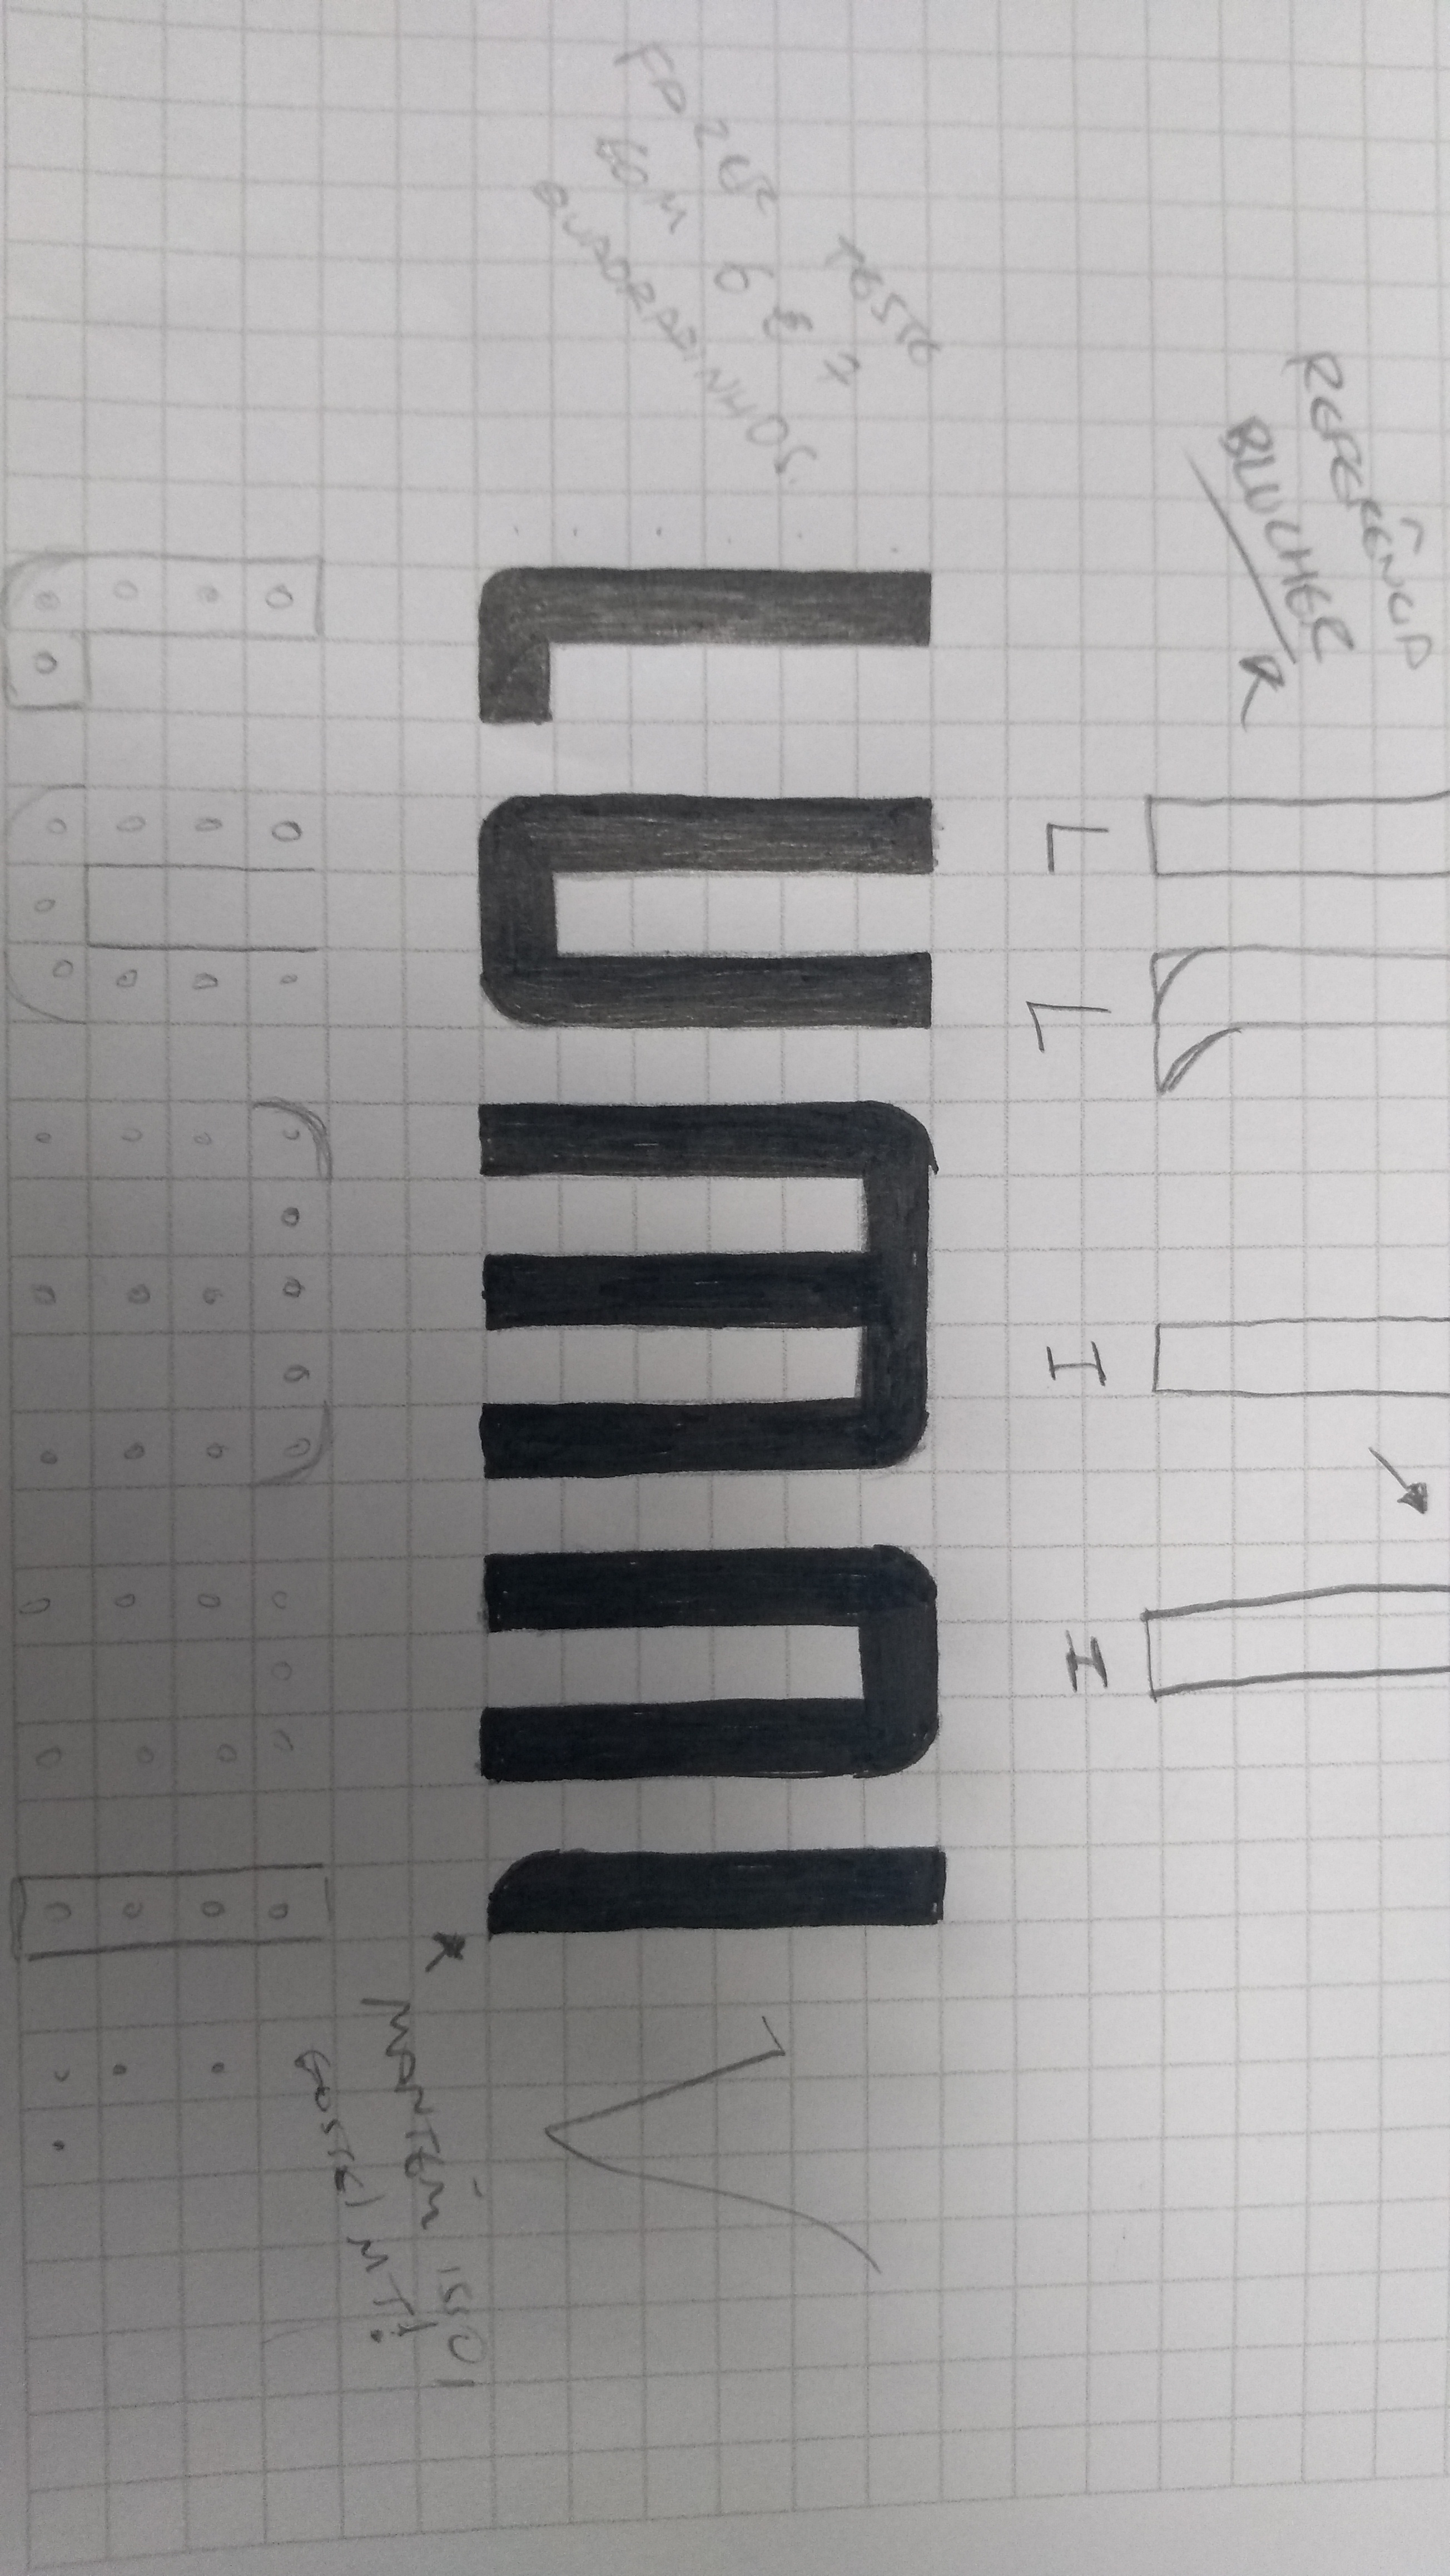 REFERÊNCIA
BLUCHER
L L I I
FAZER TESTE
COM 6 E 7
QUADRADINHOS.
LUMNI
MANTÉM ISSO!
GOSTEI MT!